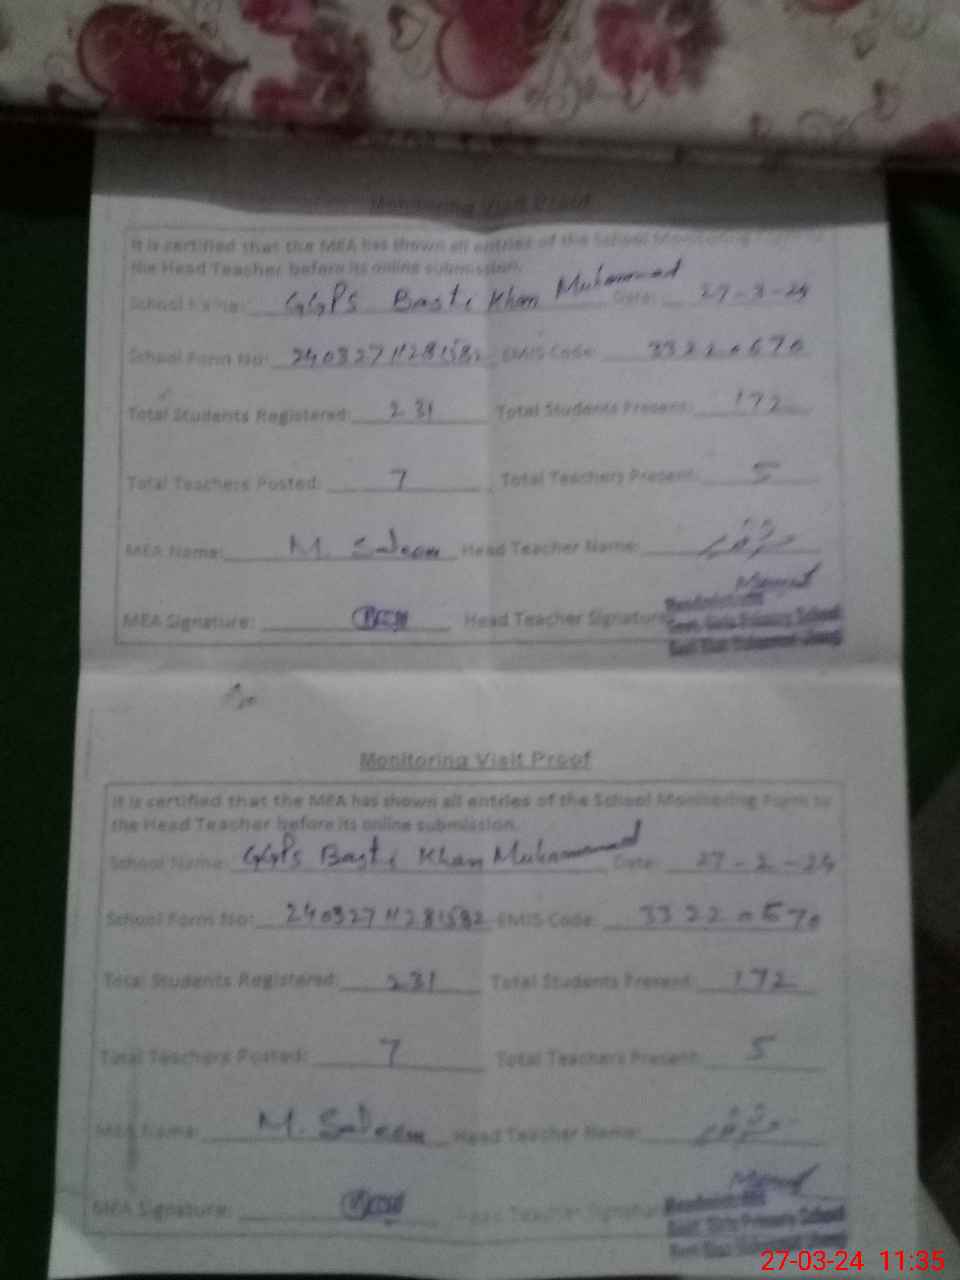 Monitoring Visit Proof
It is certified that the MEA has shown all entries of the School Monitoring
the Head Teacher before its online submission.
School Name: GGPS Basti Khan Muhammad Date: 27-3-24
School Form No: 240327 11281582 EMIS Code: 33220670
Total Students Registered: 231 Total Students Present: 172
Total Teachers Posted: 7 Total Teachers Present: 5
MEA Name: M. Saleem Head Teacher Name:
MEA Signature: Head Teacher Signature
Govt. Girls Primary School
Monitoring Visit Proof
It is certified that the MEA has shown all entries of the School Monitoring Form to
the Head Teacher before its online submission.
School Name: GGPS Basti Khan Muhammad Date: 27-2-24
School Form No: 240327 11281582 EMIS Code: 33220670
Total Students Registered: 231 Total Students Present: 172
Total Teachers Posted: 7 Total Teachers Present: 5
MEA Name: M. Saleem Head Teacher Name:
MEA Signature: Head Teacher Signature
Govt. Girls Primary School
27-03-24 11:35